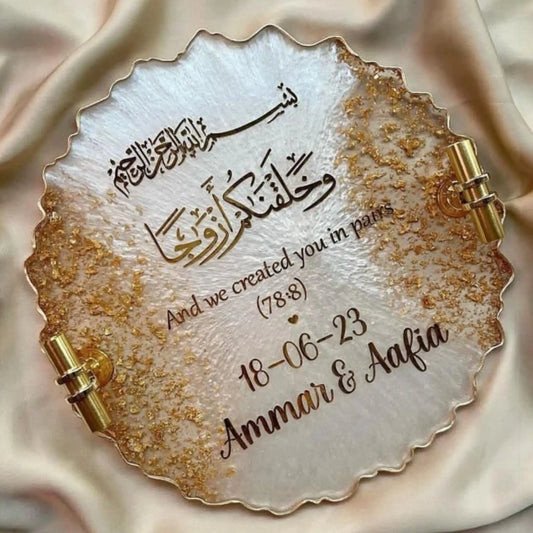 بسم الله الرحمن الرحيم
وَخَلَقْنَٰكُمْ أَزْوَٰجًا
And we created you in pairs
(78:8)
18-06-23
Ammar & Aafia